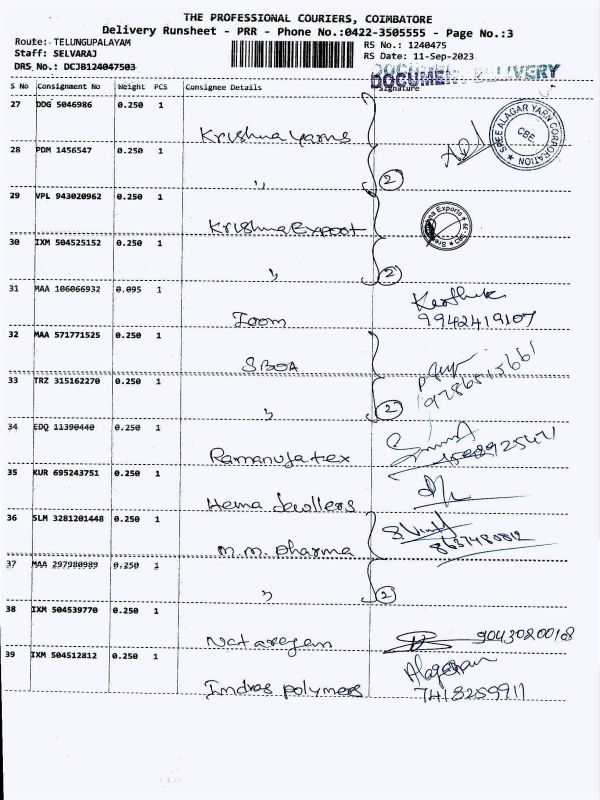 THE PROFESSIONAL COURIERS, COIMBATORE
Delivery Runsheet - PRR - Phone No.:0422-3505555 - Page No.:3
Route:- TELUNGUPALAYAM RS No.: 1240475
Staff: SELVARAJ RS Date: 11-Sep-2023
DRS No.: DCJB124047503 DOCUMENT DELIVERY
S No Consignment No Weight PCS Consignee Details Signature
27 DDG 5046986 0.250 1
Krishna Yarns
SREE ALAGAR YARN CORPORATION ★ CBE ★
28 PDM 1456547 0.250 1
" 2
29 VPL 943020962 0.250 1
Krishna Export
30 IXM 504525152 0.250 1
" 2
31 MAA 106066932 0.095 1
Zoom 9942419107
32 MAA 571771525 0.250 1
SBOA
33 TRZ 315162270 0.250 1
" 2
34 EDQ 11390440 0.250 1
Ramanuja tex
35 KUR 695243751 0.250 1
Hema Jewllers
36 SLM 3281201448 0.250 1
M.M. Dharma
37 MAA 297980989 0.250 1
" 2
38 IXM 504539770 0.250 1
Natarajan 9043020018
39 IXM 504512812 0.250 1
Indras polymers 7418259911